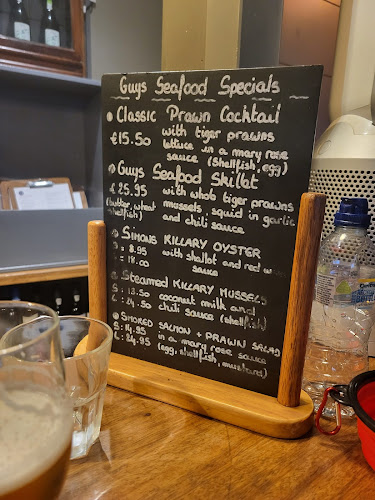 Guys Seafood Specials
Classic Prawn Cocktail
€15.50 with tiger prawns
lettuce in a mary rose
sauce (shellfish, egg)
Guys Seafood Skillet
€25.95 with whole tiger prawns
(butter, wheat mussels, squid in garlic
shellfish) and chili sauce
Simons KILLARY OYSTER
3: 8.95 with shallot and red
18.00 sauce
Steamed KILLARY MUSSELS
S: 13.50 coconut milk and
L: 24.50 chili sauce (shellfish)
SMOKED SALMON + PRAWN SALAD
S: 14.95 in a mary rose sauce
L: 24.95 (egg, shellfish, mustard)